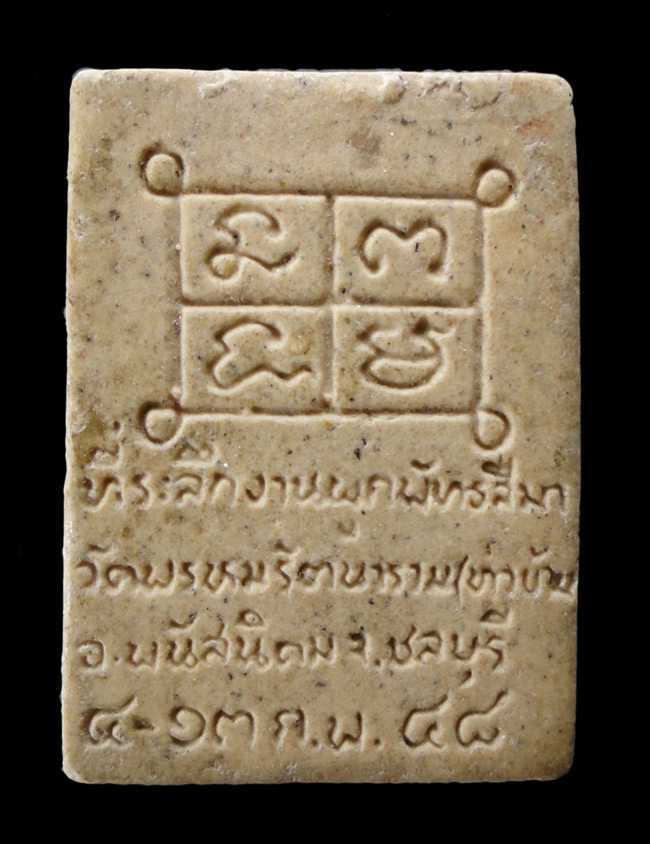 ที่ระลึกงานผูกพัทธสีมา
วัดพรหมรัตนาราม(ท่าข้าม
อ.พนัสนิคม จ.ชลบุรี
๔-๑๓ ก.พ. ๔๘